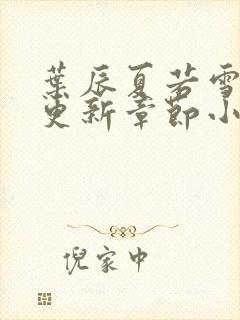 葉辰夏若雪
更新章節小
倪家中